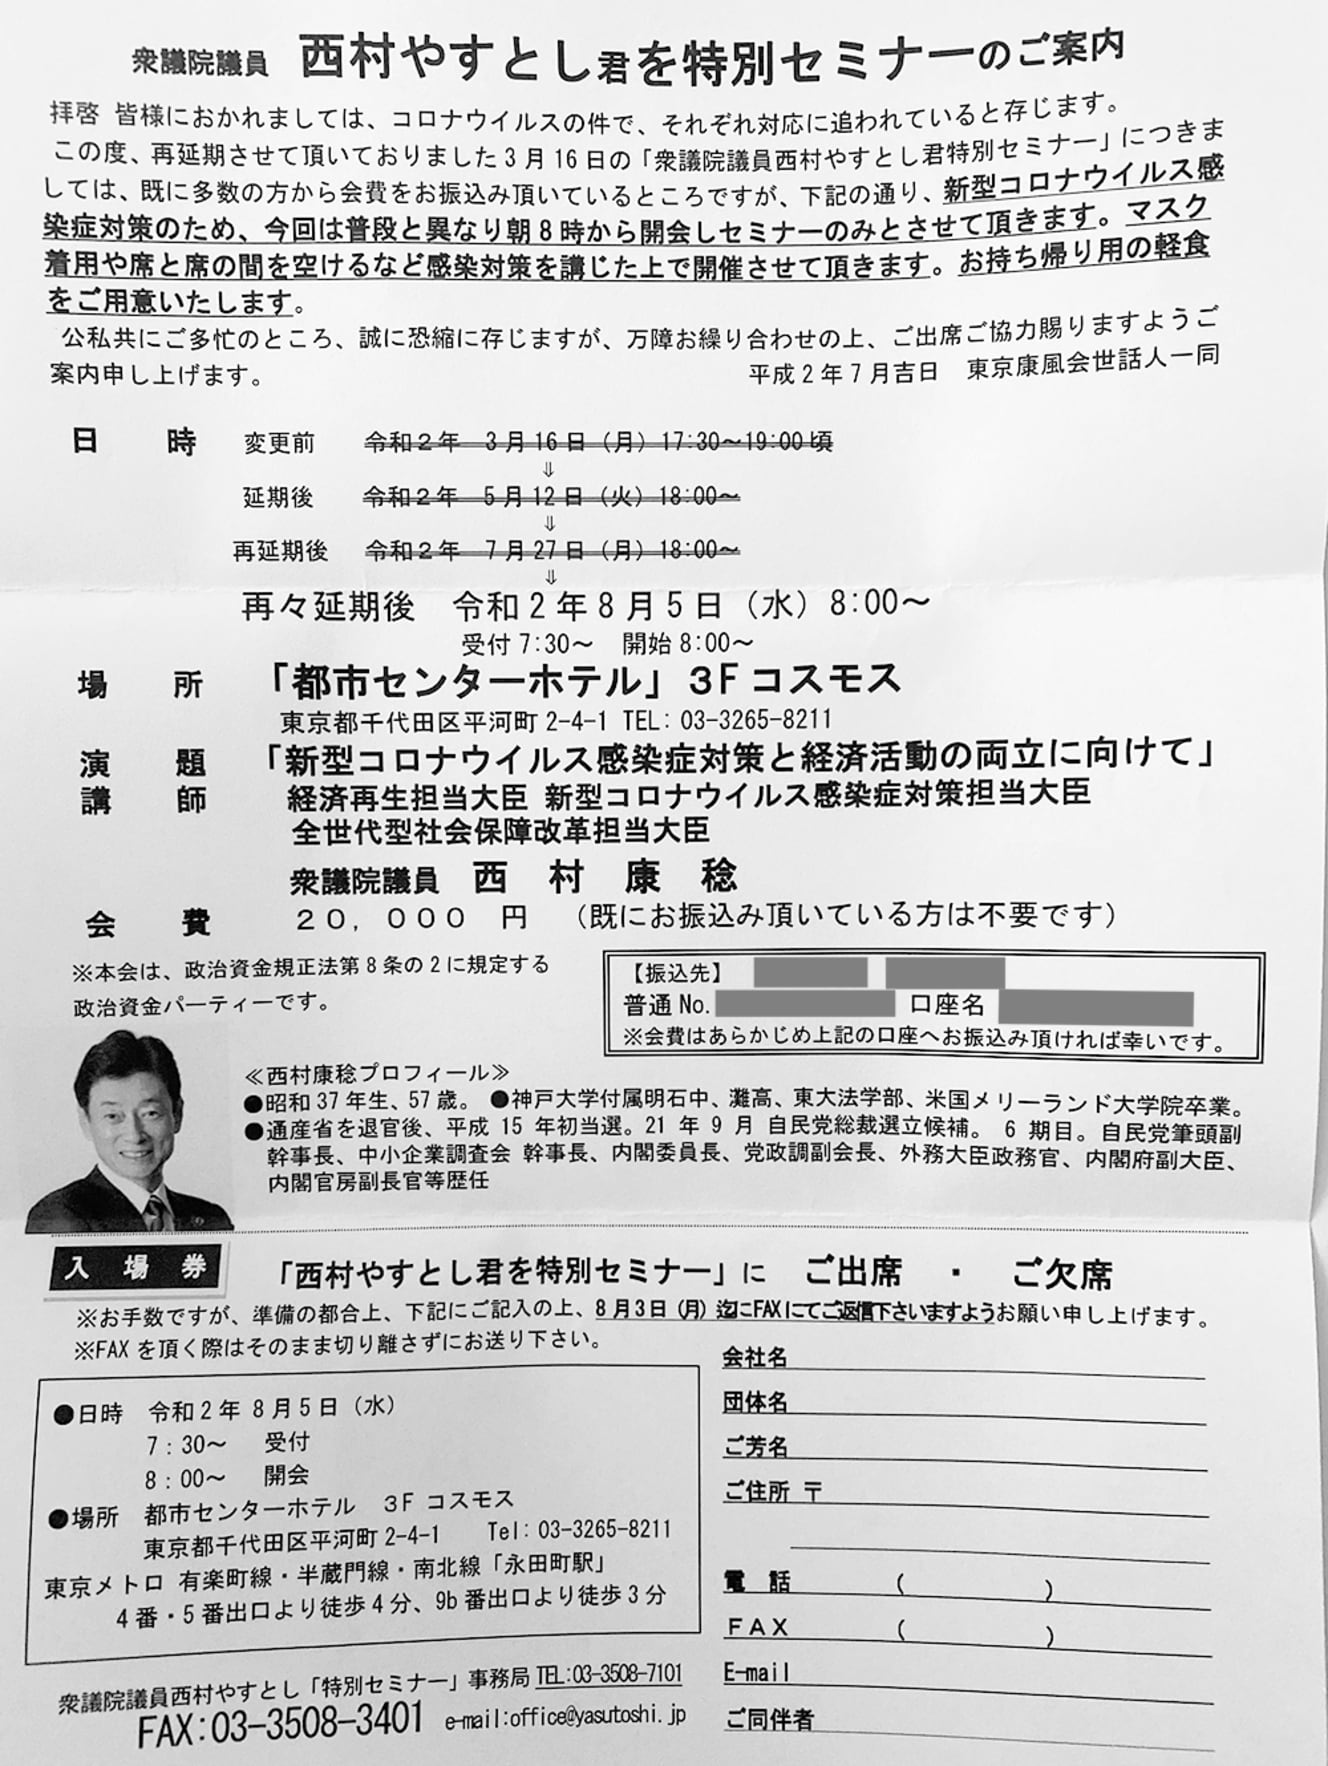 衆議院議員 西村やすとし君を特別セミナーのご案内
拝啓 皆様におかれましては、コロナウイルスの件で、それぞれ対応に追われていると存じます。
この度、再延期させて頂いておりました3月16日の「衆議院議員西村やすとし君特別セミナー」につきま
しては、既に多数の方から会費をお振込み頂いているところですが、下記の通り、新型コロナウイルス感
染症対策のため、今回は普段と異なり朝8時から開会しセミナーのみとさせて頂きます。マスク
着用や席と席の間を空けるなど感染対策を講じた上で開催させて頂きます。お持ち帰り用の軽食
をご用意いたします。
公私共にご多忙のところ、誠に恐縮に存じますが、万障お繰り合わせの上、ご出席ご協力賜りますようご
案内申し上げます。 平成2年7月吉日 東京康風会世話人一同
日 時 変更前 令和2年 3月16日(月)17:30~19:00頃
⇓
延期後 令和2年 5月12日(火)18:00~
⇓
再延期後 令和2年 7月27日(月)18:00~
⇓
再々延期後 令和2年8月5日(水)8:00~
受付7:30~ 開始8:00~
場 所 「都市センターホテル」3Fコスモス
東京都千代田区平河町2-4-1 TEL: 03-3265-8211
演 題 「新型コロナウイルス感染症対策と経済活動の両立に向けて」
講 師 経済再生担当大臣 新型コロナウイルス感染症対策担当大臣
全世代型社会保障改革担当大臣
衆議院議員 西 村 康 稔
会 費 20,000 円 (既にお振込み頂いている方は不要です)
※本会は、政治資金規正法第8条の2に規定する
政治資金パーティーです。
【振込先】
普通No. 口座名
※会費はあらかじめ上記の口座へお振込み頂ければ幸いです。
≪西村康稔プロフィール≫
●昭和37年生、57歳。 ●神戸大学付属明石中、灘高、東大法学部、米国メリーランド大学院卒業。
●通産省を退官後、平成 15 年初当選。21 年 9 月 自民党総裁選立候補。 6 期目。自民党筆頭副
幹事長、中小企業調査会 幹事長、内閣委員長、党政調副会長、外務大臣政務官、内閣府副大臣、
内閣官房副長官等歴任
入 場 券 「西村やすとし君を特別セミナー」に ご出席 ・ ご欠席
※お手数ですが、準備の都合上、下記にご記入の上、8月3日(月)迄にFAXにてご返信下さいますようお願い申し上げます。
※FAXを頂く際はそのまま切り離さずにお送り下さい。
●日時 令和2年 8月5日(水)
7:30~ 受付
8:00~ 開会
●場所 都市センターホテル 3F コスモス
東京都千代田区平河町2-4-1 Tel: 03-3265-8211
東京メトロ 有楽町線・半蔵門線・南北線「永田町駅」
4番・5番出口より徒歩4分、9b番出口より徒歩3分
衆議院議員西村やすとし「特別セミナー」事務局 TEL:03-3508-7101
FAX:03-3508-3401 e-mail:office@yasutoshi.jp
会社名
団体名
ご芳名
ご住所 〒
電 話 ( )
FAX ( )
E-mail
ご同伴者